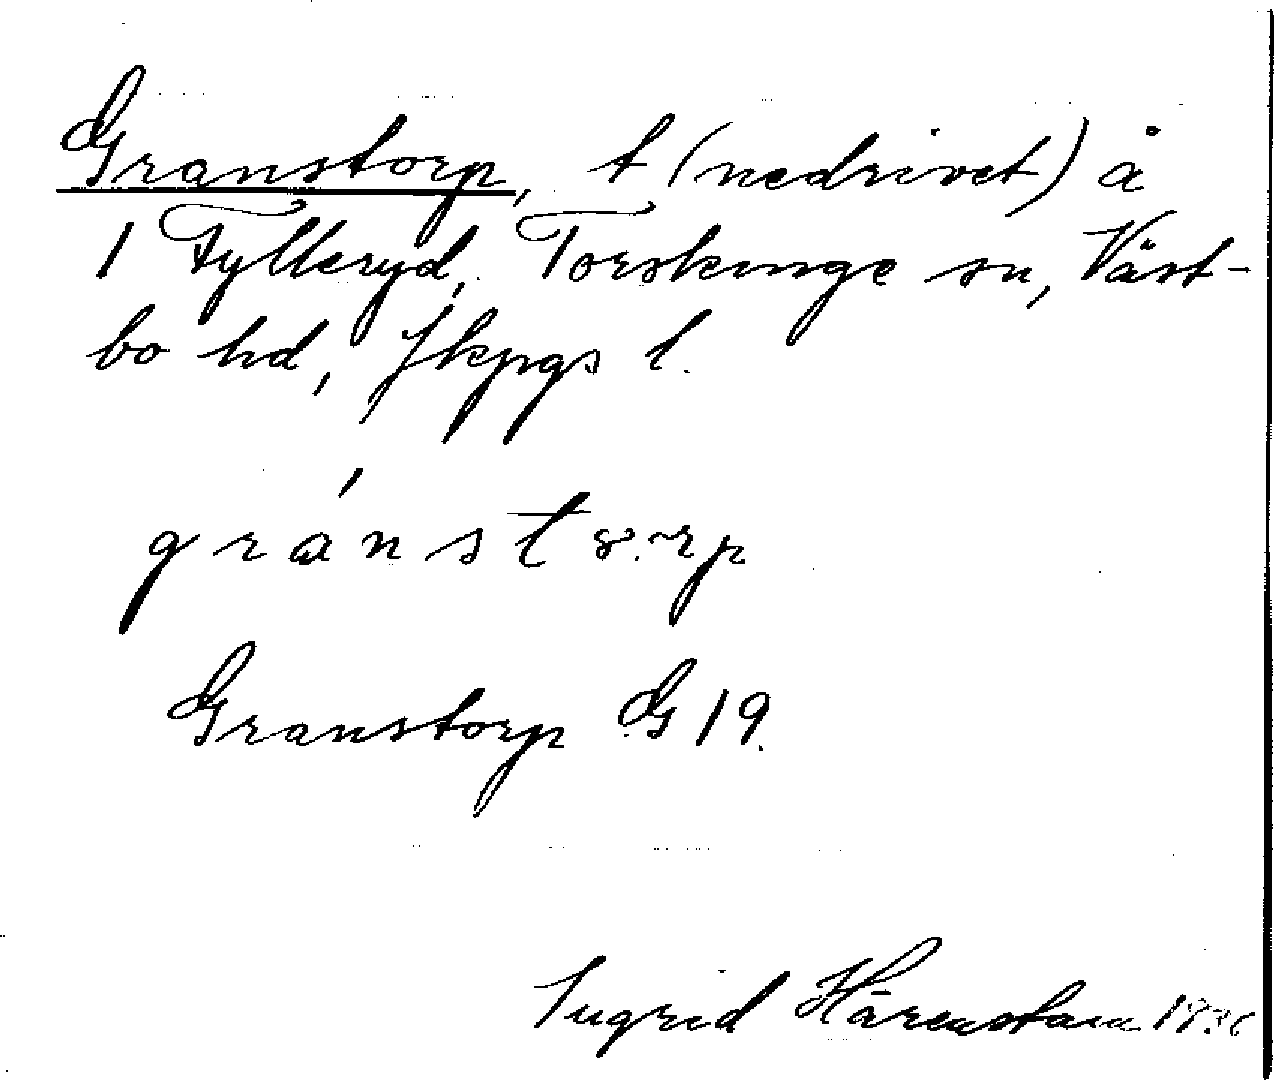 Granstorp, t (nedrivet) å
1 Fylleryd, Torskinge sn, Väst-
bo hd, Jkpgs l.
gránst
Granstorp G 19.
Ingrid Härenstam 1936